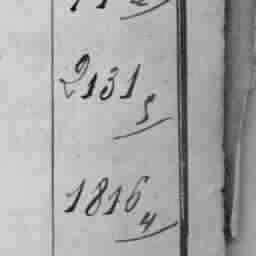 2131
5
1816
4